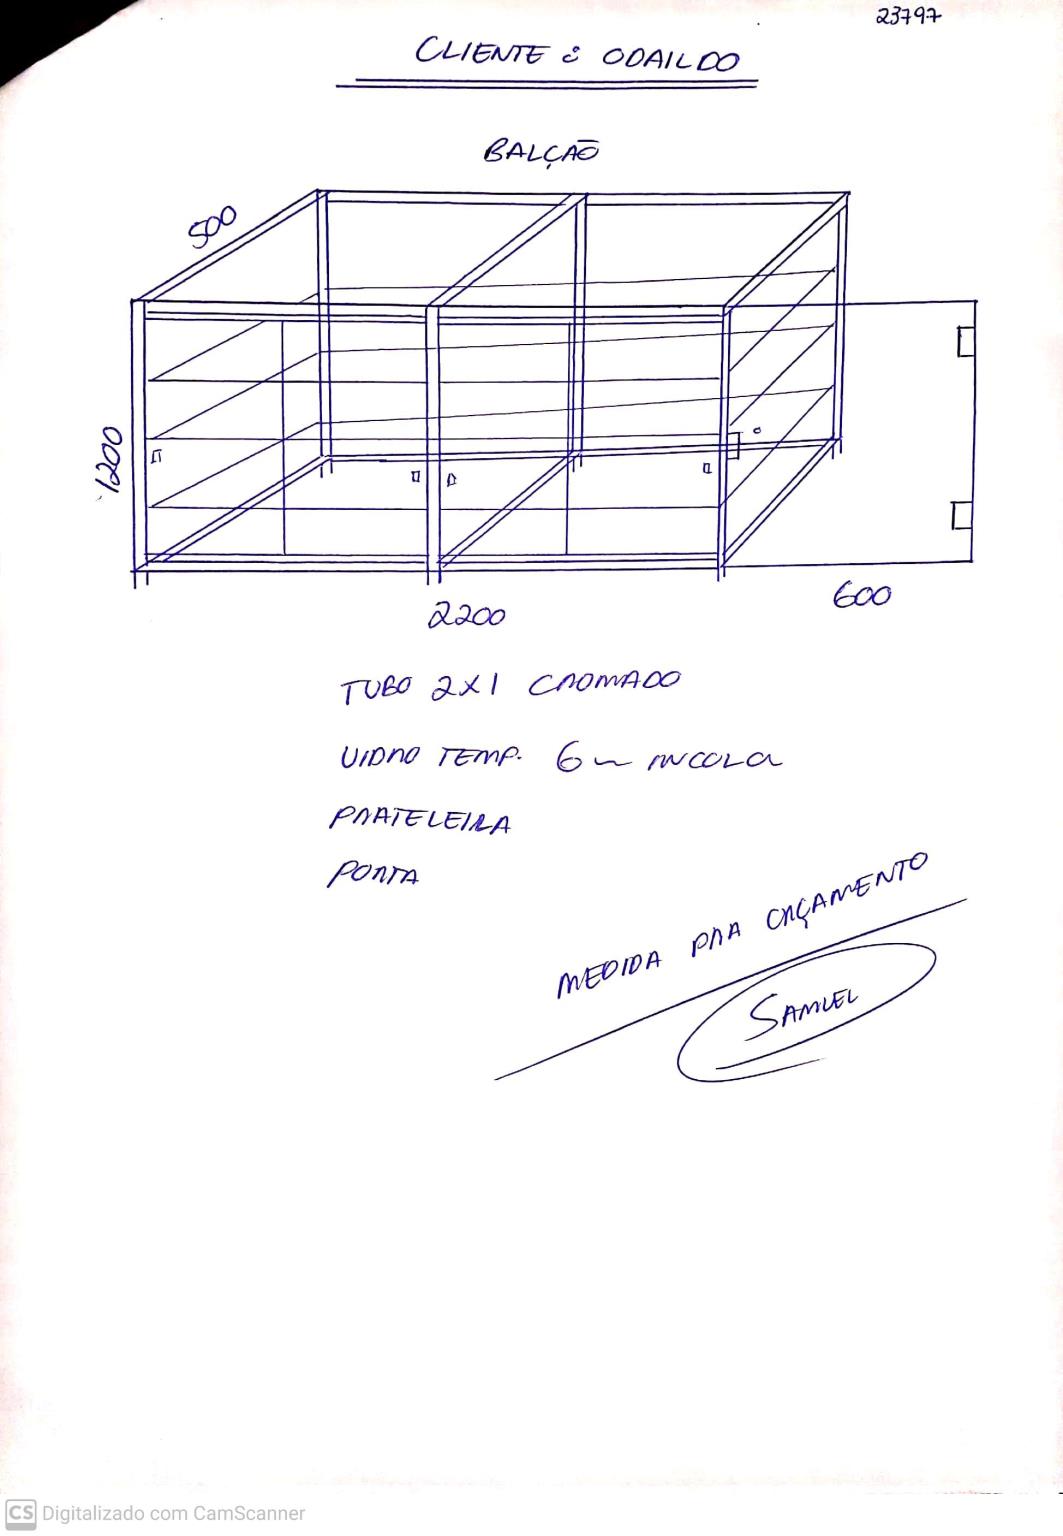 23797
CLIENTE : ODAILDO
BALÇÃO
500
1200
2200
600
TUBO 2X1 CROMADO
VIDRO TEMP. 6m INCOLOR
PRATELEIRA
PORTA
MEDIDA PRA ORÇAMENTO
SAMUEL
CS Digitalizado com CamScanner